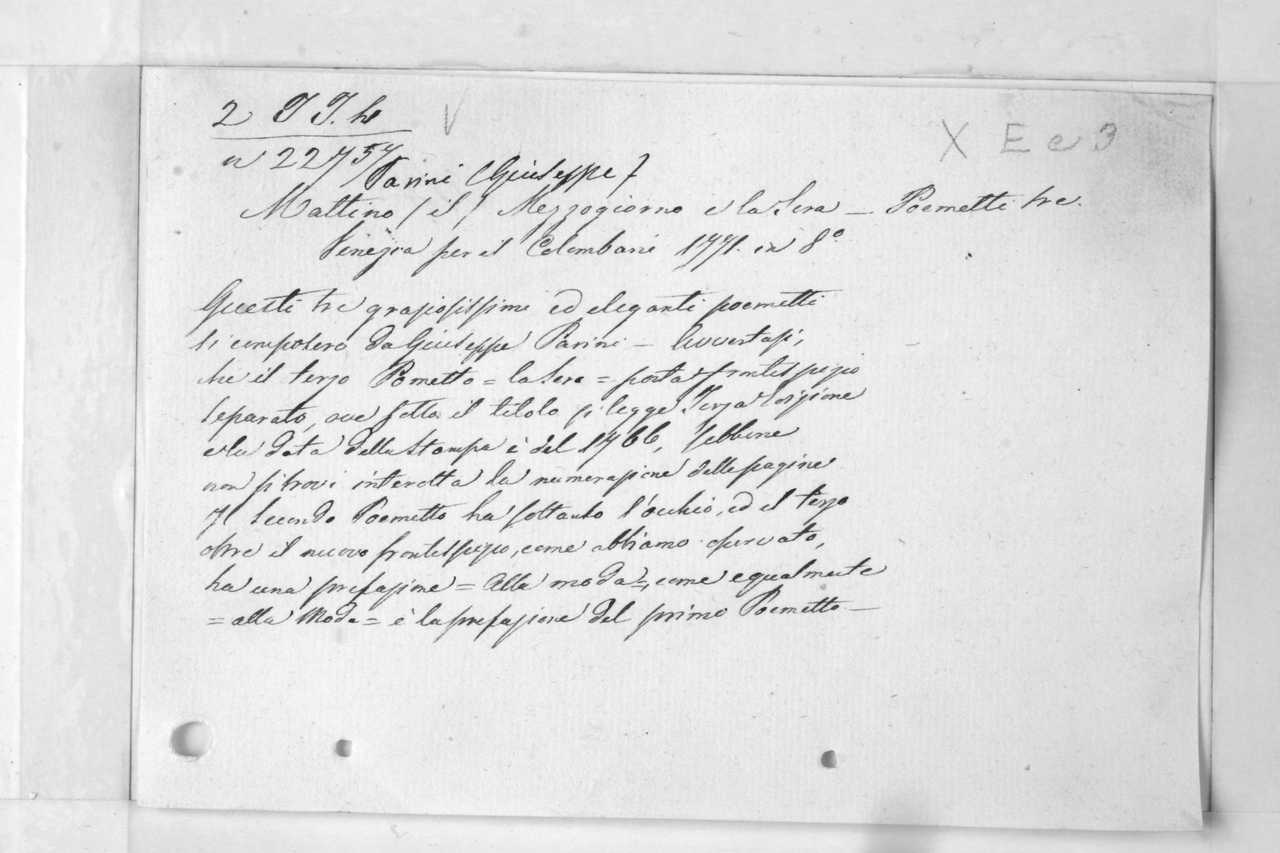 2 T T. h V
X E e 3
n 22757
Parini (Giuseppe)
Mattino (il) Mezzogiorno e la Sera — Poemetti tre.
Venezia per il Colombani 1771. in 8.°
Questi tre graziosissimi ed eleganti poemetti
si composero da Giuseppe Parini — Avvertasi,
che il terzo Pometto = la Sera = porta frontespizio
separato, ove sotto il titolo si legge Terza Edizione
e la data della stampa è del 1766, sebbene
non si trovi interotta la numerazione delle pagine
Il secondo Poemetto ha soltanto l'occhio, ed il terzo
oltre il nuovo frontespizio, come abbiamo osservato,
ha una prefazione = Alla moda =, come egualmente
= alla Moda = è la prefazione del primo Poemetto —